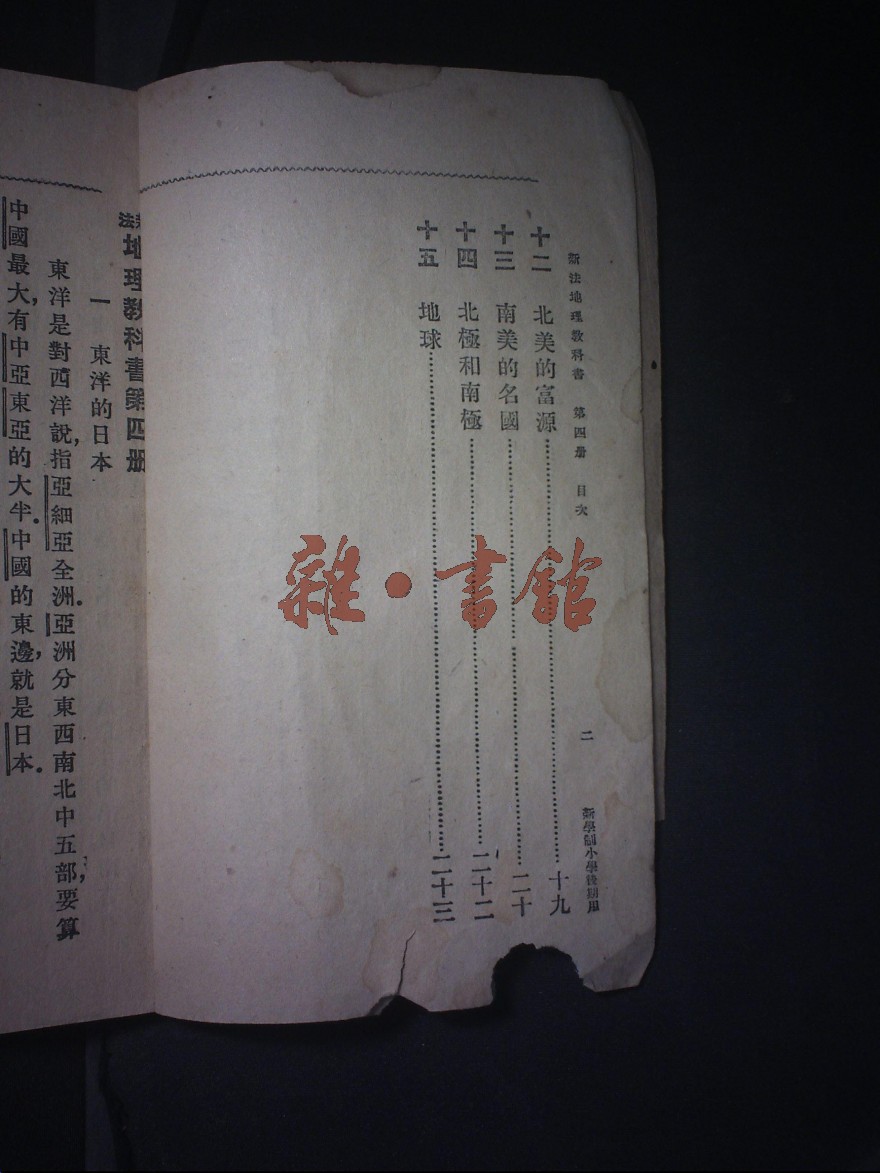 新法地理教科書 第四册 目次 二 新學制小學後期用
十二 北美的富源……十九
十三 南美的名國……二十
十四 北極和南極……二十二
十五 地球……二十三
法地理教科書第四册
一 東洋的日本
東洋是對西洋說，指亞細亞全洲。亞洲分東西南北中五部，要算
中國最大，有中亞東亞的大半。中國的東邊，就是日本。
雜·書館